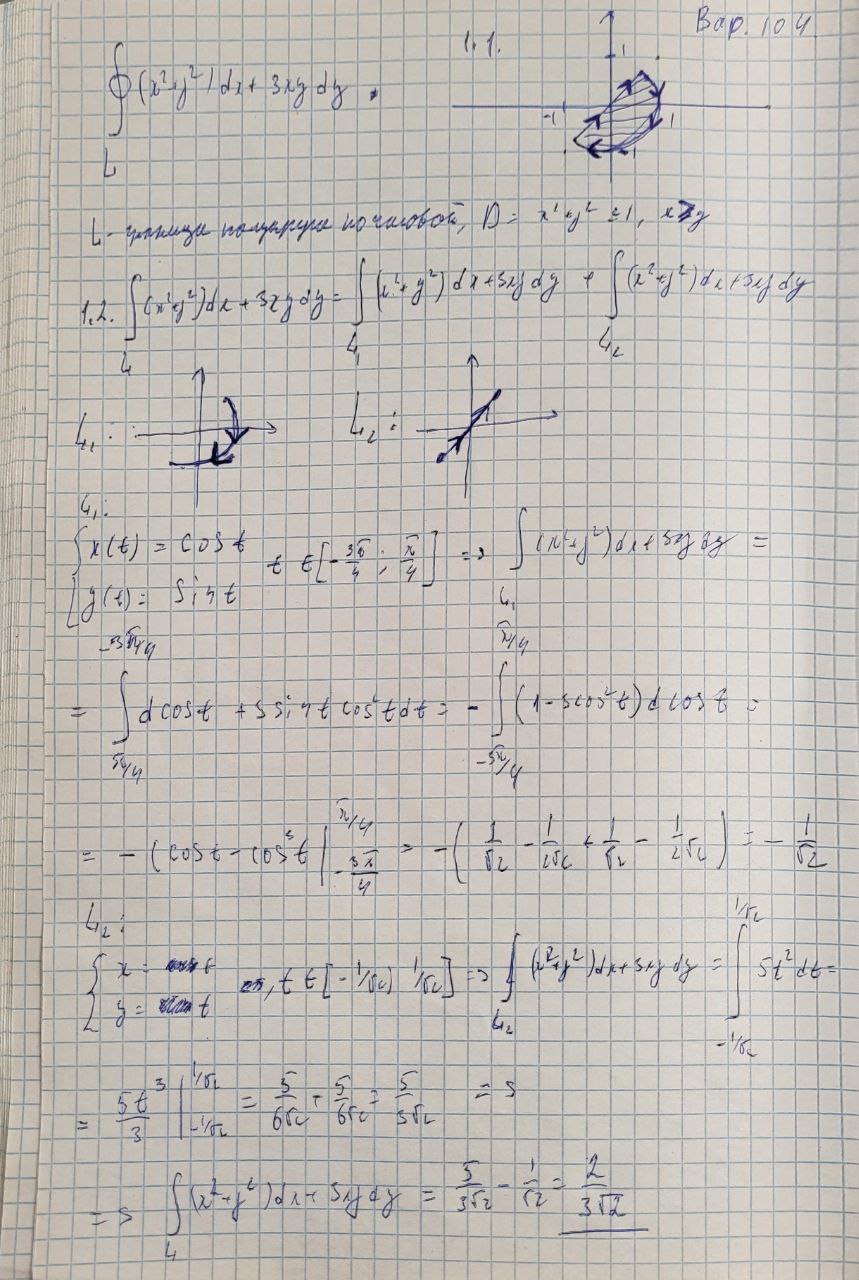 Вар. 104
1.1.
∮ (x²+y²) dx + 3xy dy.
L
1
-1 1
-1
L - граница полукруга по часовой, D = x²+y² ≤ 1, x ≥ y
1.2. ∫ (x²+y²) dx + 3xy dy = ∫ (x²+y²) dx + 3xy dy + ∫ (x²+y²) dx + 3xy dy
L L₁ L₂
L₁ : L₂ :
L₁:
{ x(t) = cos t
y(t) = sin t t ∈ [-3π/4 ; π/4] => ∫ (x²+y²) dx + 3xy dy =
L₁
-3π/4 π/4
= ∫ d cos t + 3 sin t cos² t dt = - ∫ (1 - 3cos² t) d cos t =
π/4 -3π/4
= - (cos t - cos³ t |^{π/4}_{-3π/4} = - (1/√2 - 1/2√2 + 1/√2 - 1/2√2) = - 1/√2
L₂:
{ x = t
y = t , t ∈ [-1/√2, 1/√2] => ∫ (x²+y²) dx + 3xy dy = ∫ 5t² dt =
L₂ 1/√2 -1/√2
= 5t³/3 |^{1/√2}_{-1/√2} = 5/6√2 + 5/6√2 = 5/3√2 =>
=> ∫ (x²+y²) dx + 3xy dy = 5/3√2 - 1/√2 = 2/3√2
L